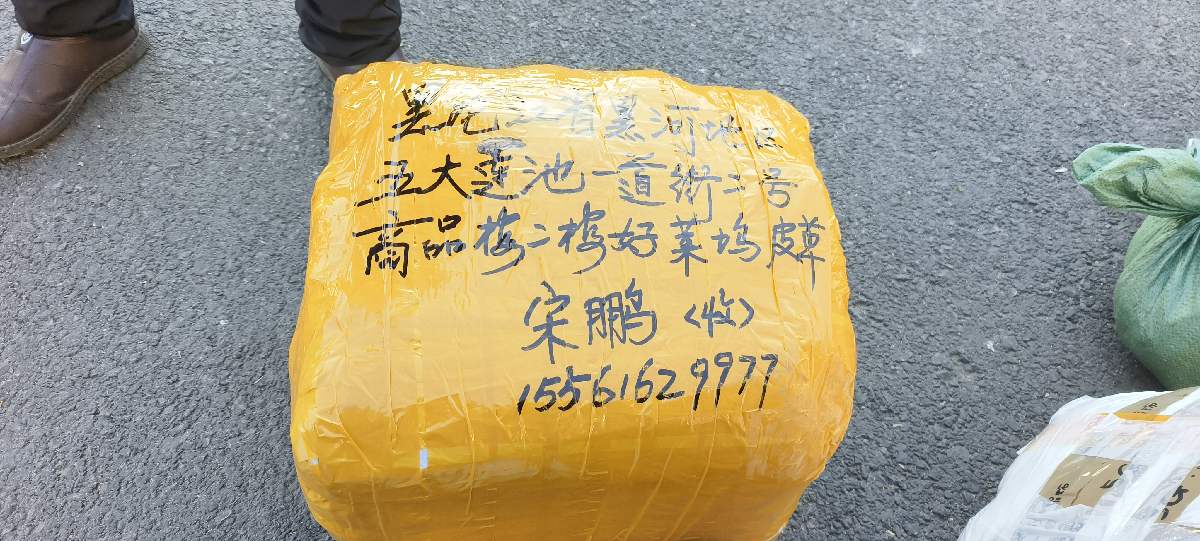 黑龙江省黑河地区
五大莲池一道街二号
商品楼二楼好莱坞皮草
宋鹏〈收〉
15561629977